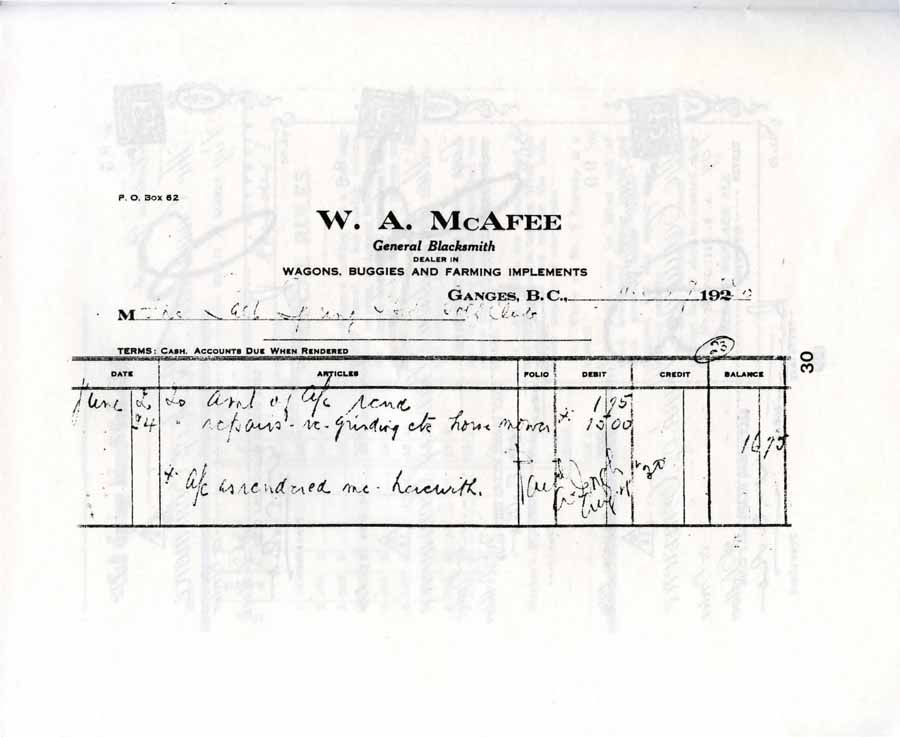 P. O. Box 62
W. A. McAFEE
General Blacksmith
DEALER IN
WAGONS, BUGGIES AND FARMING IMPLEMENTS
GANGES, B.C., 192
M The Salt Spring Golf Club
TERMS: CASH. ACCOUNTS DUE WHEN RENDERED
23
30
DATE ARTICLES FOLIO DEBIT CREDIT BALANCE
June 2 To Amt of A/c rend 1 75
24 " repairs - re-grinding etc horse mower * 15 00
16 75
* A/c as rendered me - herewith.